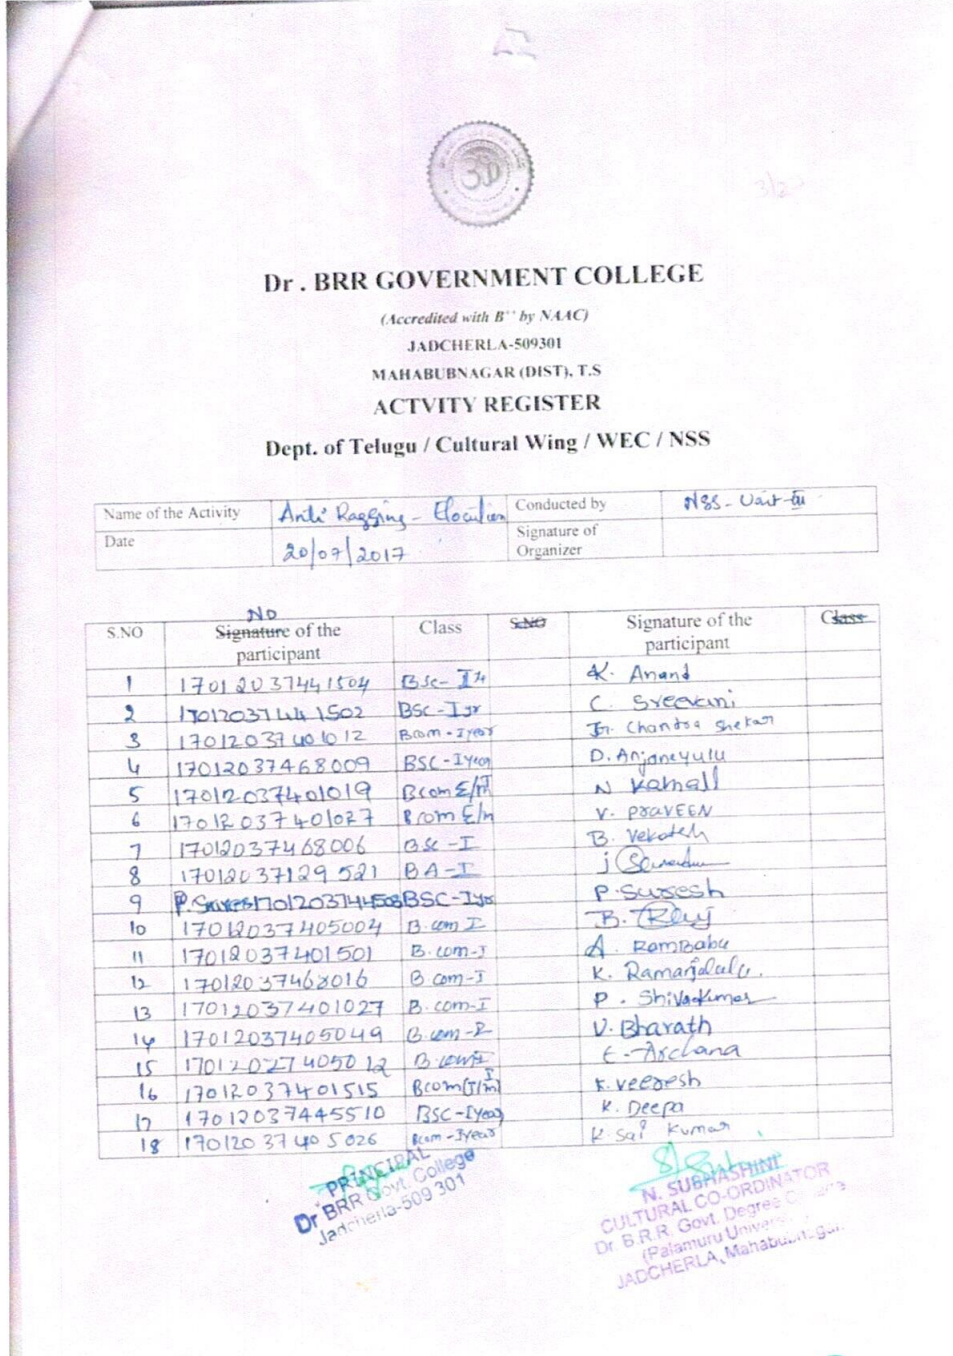 Dr . BRR GOVERNMENT COLLEGE
(Accredited with B++ by NAAC)
JADCHERLA-509301
MAHABUBNAGAR (DIST), T.S
ACTVITY REGISTER
Dept. of Telugu / Cultural Wing / WEC / NSS
Name of the Activity Anti Ragging - Elocution Conducted by NSS - Unit - III
Date 20/07/2017 Signature of Organizer
NO
S.NO Signature of the participant Class S.NO Signature of the participant Class
1 17012037441504 BSc- I K. Anand
2 17012037441502 BSC-Iyr C. Sreevani
3 17012037401012 Bcom - Iyear Chandra Shekar
4 17012037468009 BSC-Iyear D. Anjaneyulu
5 17012037401019 Bcom E/M N Kamall
6 17012037401027 Bcom E/m V. PraVEEN
7 17012037468006 BSc - I B. Vekatesh
8 17012037129521 BA-I J
9 P. Sures 17012037441508 BSC-Iyr P. Suresh
10 17012037405004 B.com I B.
11 17012037401501 B.com-I A. RamBabu
12 17012037468016 B.com-I K. Ramanjulu.
13 17012037401027 B.com-I P. Shivakumar
14 17012037405049 B.com-I V. Bharath
15 17012027405012 B.com-I E. Archana
16 17012037401515 Bcom(T/m) I K. Veeresh
17 17012037445510 BSC-Iyear K. Deepa
18 17012037405026 Bcom-Iyear K. Sai Kumar
PRINCIPAL
Dr BRR Govt. College
Jadcherla-509 301
N. SUBHASHINI
CULTURAL CO-ORDINATOR
Dr. B.R.R. Govt. Degree
(Palamuru
JADCHERLA, Mahabubnagar.